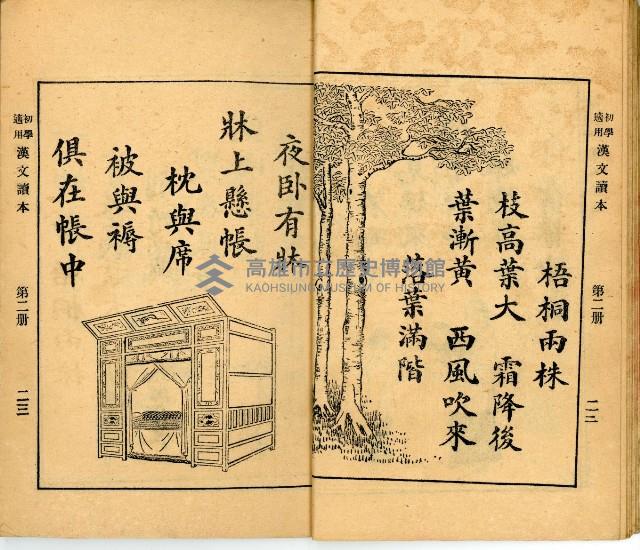 初學適用 漢文讀本 第二册 二二
梧桐兩株
枝高葉大 霜降後
葉漸黄 西風吹來
落葉滿階
夜卧有牀
牀上懸帳
枕與席
被與褥
俱在帳中
初學適用 漢文讀本 第二册 二三
高雄市立歷史博物館
KAOHSIUNG MUSEUM OF HISTORY